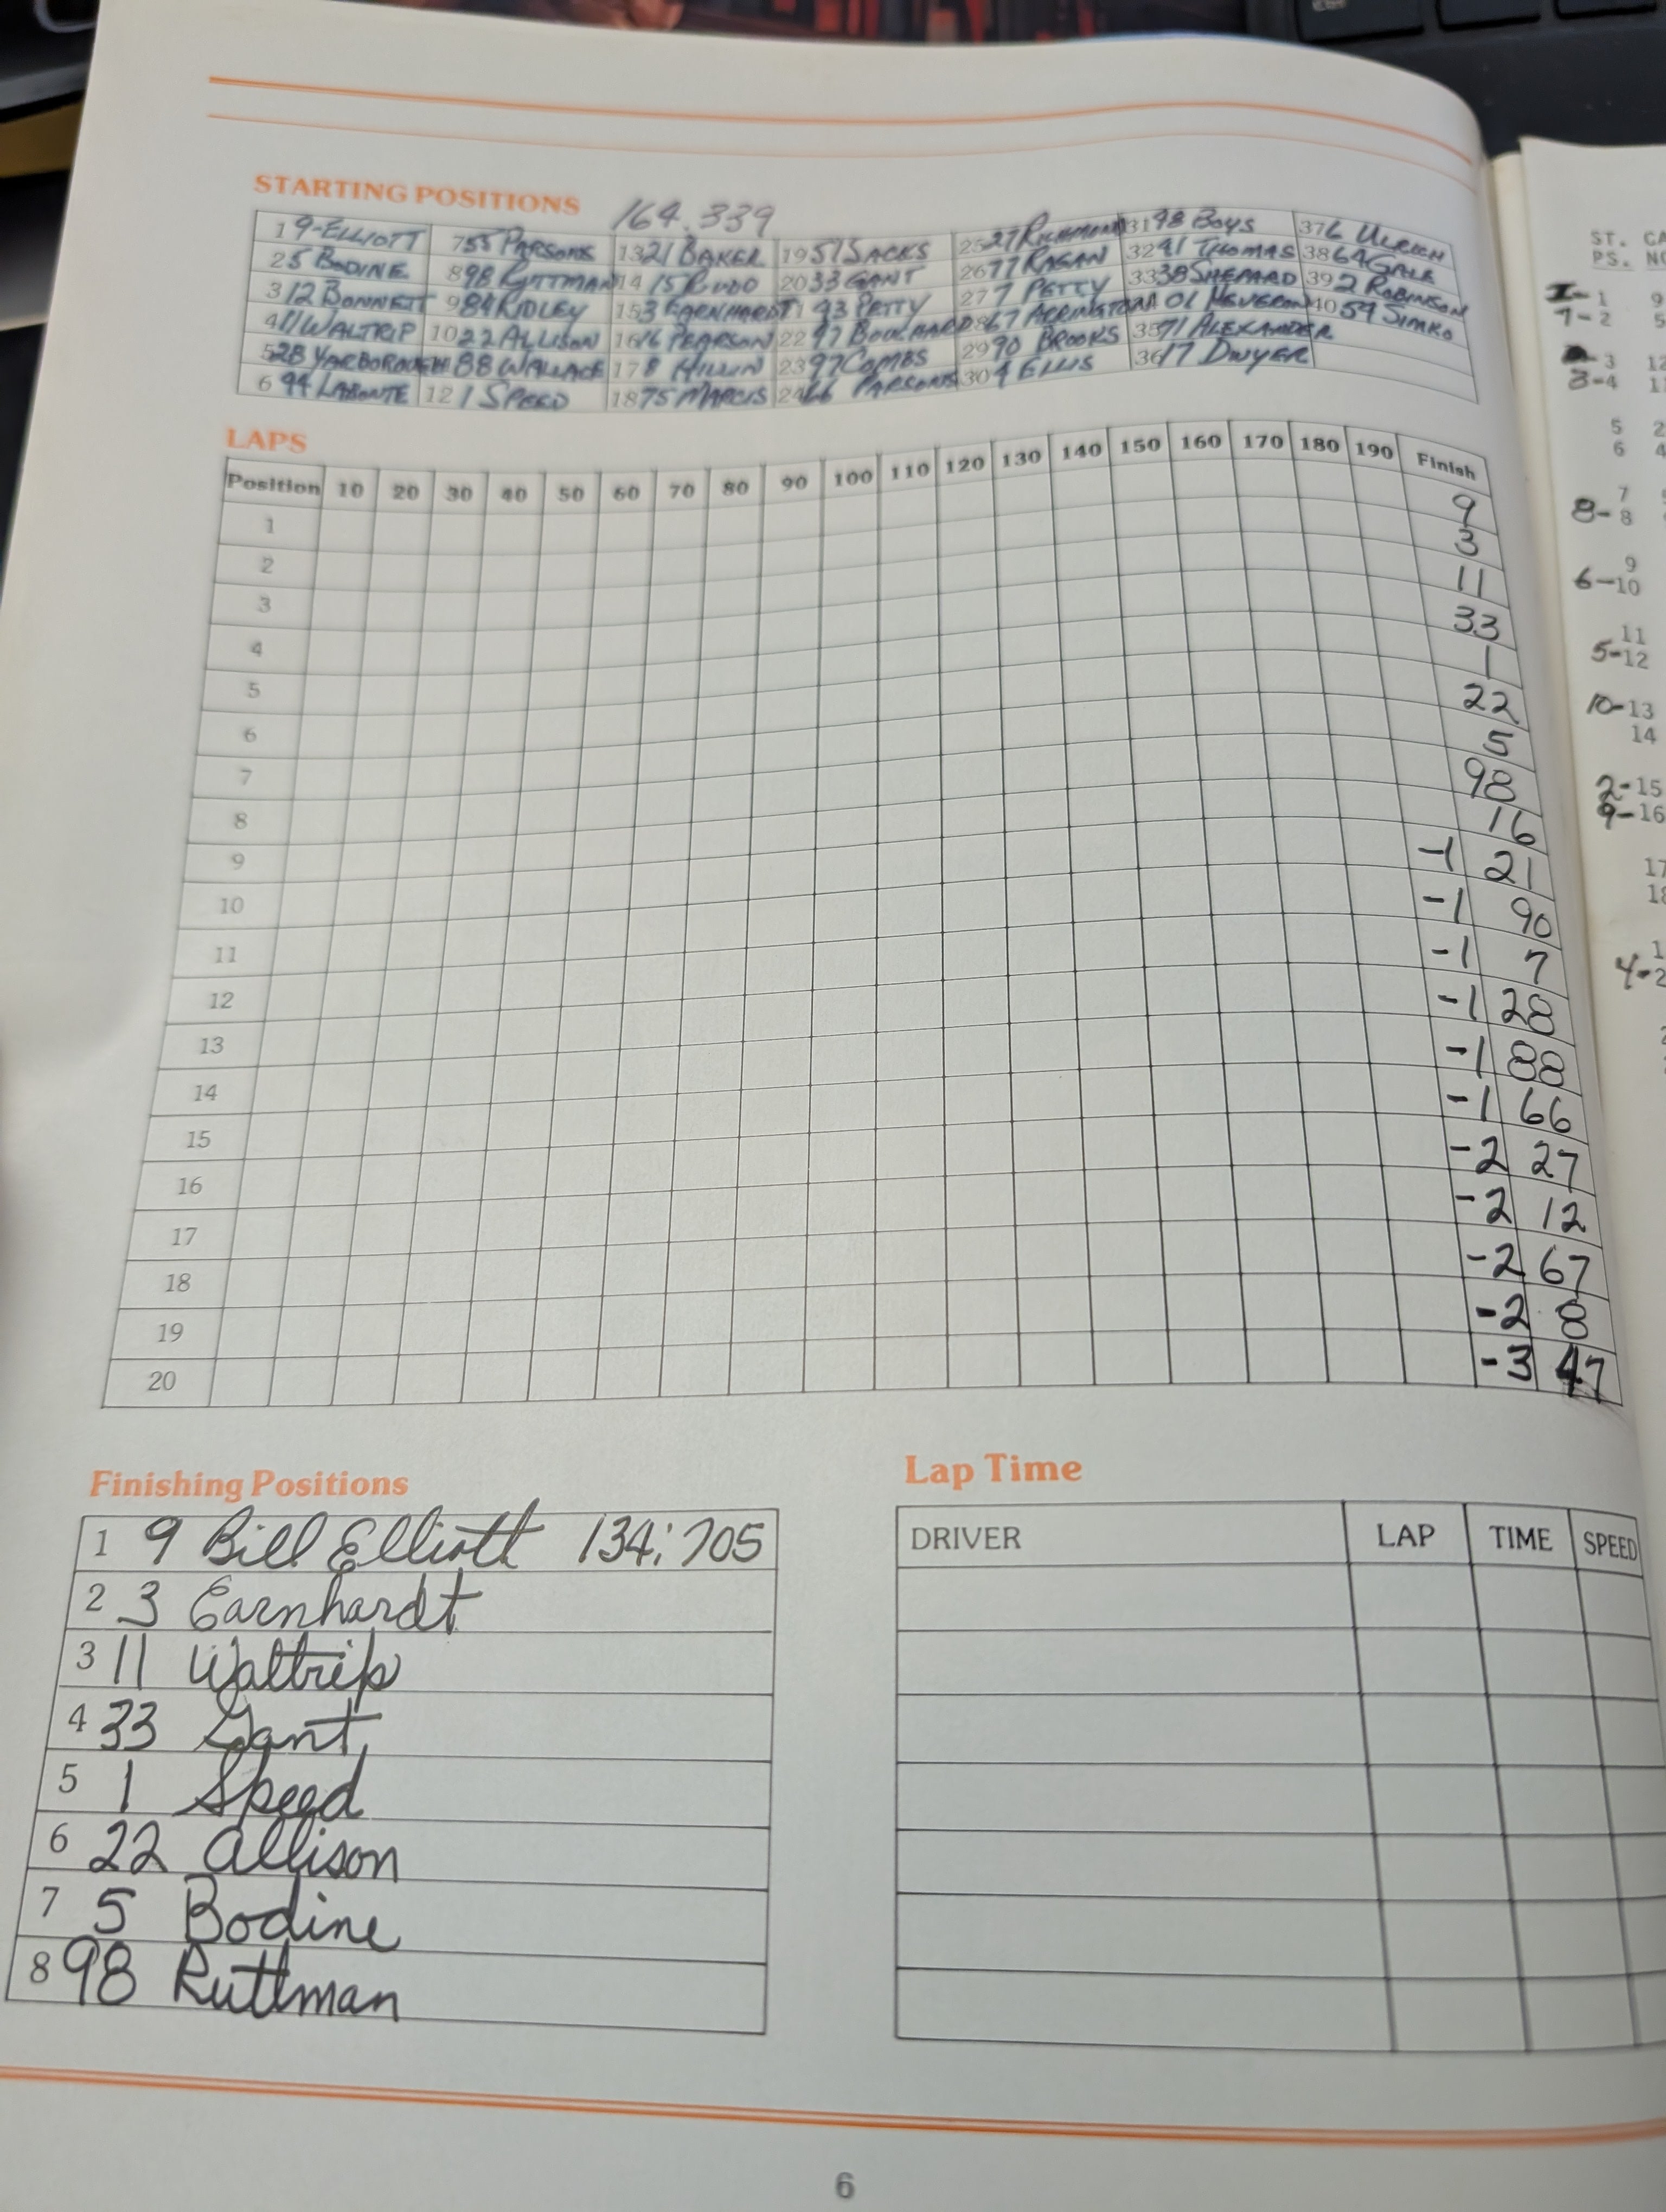 STARTING POSITIONS 164.339
1 9-ELLIOTT 7 55 PARSONS 13 21 BAKER 19 51 SACKS 25 27 RICHMOND 31 48 BOYS 37 6 ULRICH
2 5 BODINE 8 98 RUTTMAN 14 15 RUDD 20 33 GANT 26 77 RAGAN 32 41 THOMAS 38 64 GALE
3 12 BONNETT 9 84 RIDLEY 15 3 EARNHARDT 43 PETTY 27 7 PETTY 33 38 SHEPARD 39 2 ROBINSON
4 11 WALTRIP 10 22 ALLISON 16 16 PEARSON 22 47 67 ARRINGTON 01 40 59 SIMKO
5 28 YARBOROUGH 88 WALLACE 17 8 HILLIN 23 97 COMBS 29 90 BROOKS 35 71 ALEXANDER
6 44 LABONTE 12 1 SPEED 18 75 MARCIS 24 66 PARSONS 30 4 ELLIS 36 17 DWYER
LAPS
Position 10 20 30 40 50 60 70 80 90 100 110 120 130 140 150 160 170 180 190 Finish
1 9
2 3
3 11
4 33
5 1
6 22
7 5
8 98
9 16
10 -1 21
11 -1 90
12 -1 7
13 -1 28
14 -1 88
15 -1 66
16 -2 27
17 -2 12
18 -2 67
19 -2 8
20 -3 47
Finishing Positions
1 9 Bill Elliott 134:705
2 3 Earnhardt
3 11 Waltrip
4 33 Gant
5 1 Speed
6 22 Allison
7 5 Bodine
8 98 Ruttman
Lap Time
DRIVER LAP TIME SPEED
6
ST.
PS.
1 9
7-2
3 12
3-4
5 2
6
7
8-8
9
6-10
11
5-12
10-13
14
2-15
9-16
17